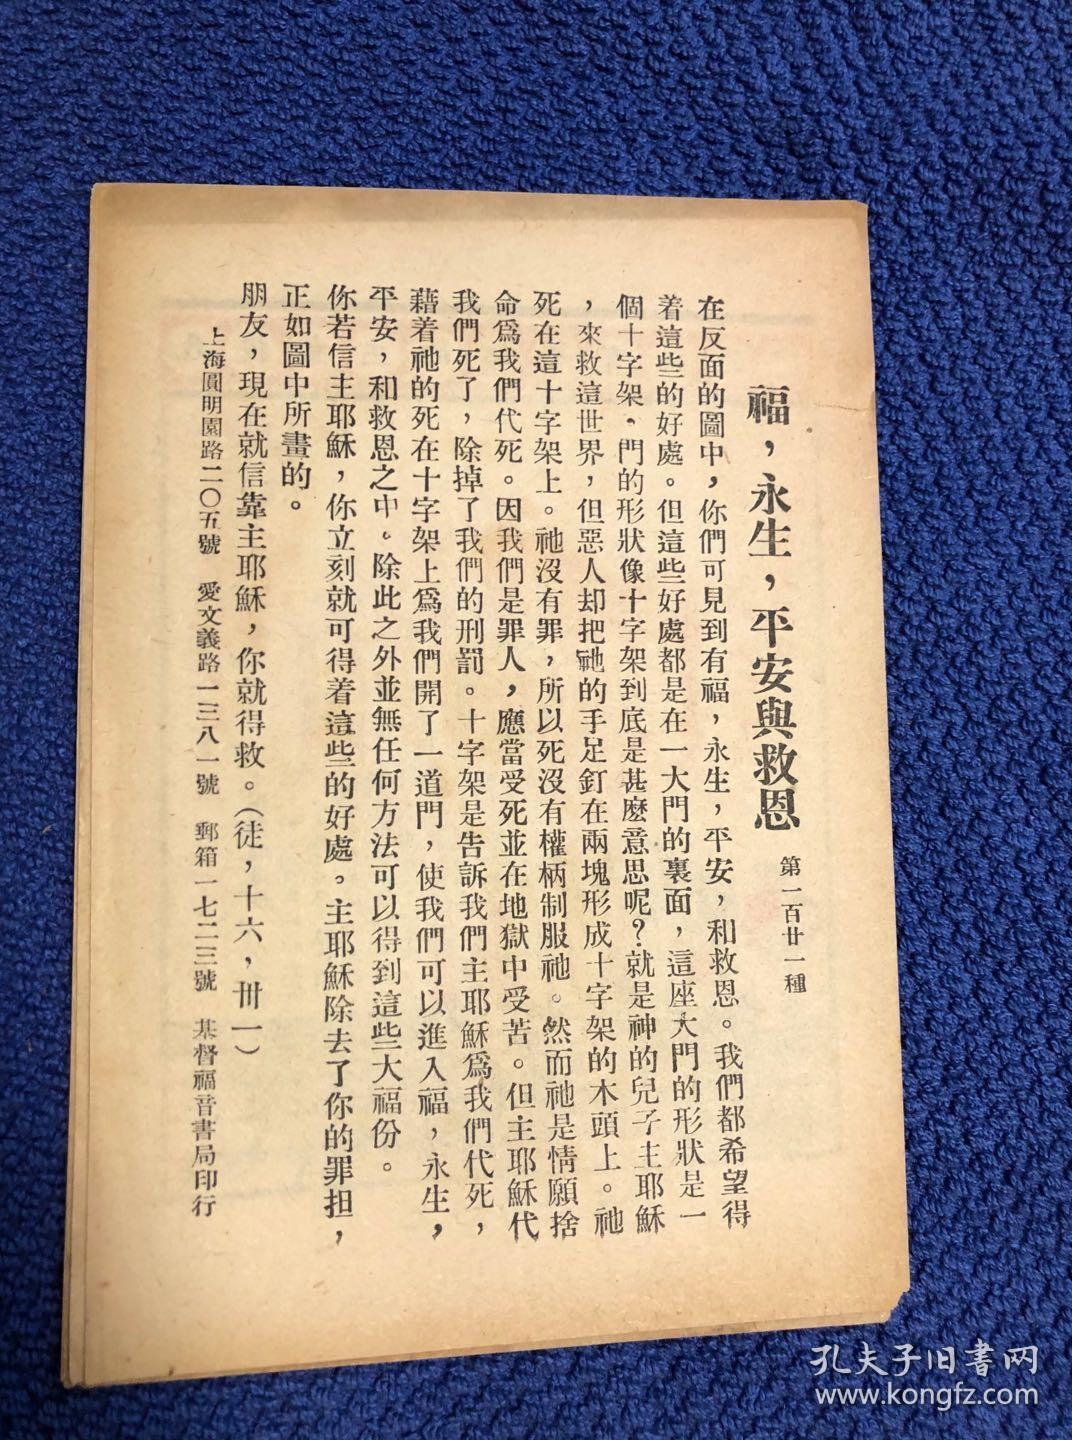 福，永生，平安與救恩　第一百廿一種
在反面的圖中，你們可見到有福，永生，平安，和救恩。我們都希望得
着這些的好處。但這些好處都是在一大門的裏面，這座大門的形狀是一
個十字架．門的形狀像十字架到底是甚麼意思呢？就是神的兒子主耶穌
，來救這世界，但惡人却把祂的手足釘在兩塊形成十字架的木頭上。祂
死在這十字架上。祂沒有罪，所以死沒有權柄制服祂。然而祂是情願捨
命爲我們代死。因我們是罪人，應當受死並在地獄中受苦。但主耶穌代
我們死了，除掉了我們的刑罰。十字架是告訴我們主耶穌爲我們代死，
藉着祂的死在十字架上爲我們開了一道門，使我們可以進入福，永生，
平安，和救恩之中。除此之外並無任何方法可以得到這些大福份。
你若信主耶穌，你立刻就可得着這些的好處。主耶穌除去了你的罪担，
正如圖中所畫的。
朋友，現在就信靠主耶穌，你就得救。（徒，十六，卅一）
上海圓明園路二〇五號　愛文義路一三八一號　郵箱一七二三號　基督福音書局印行
孔夫子旧書网
www.kongfz.com